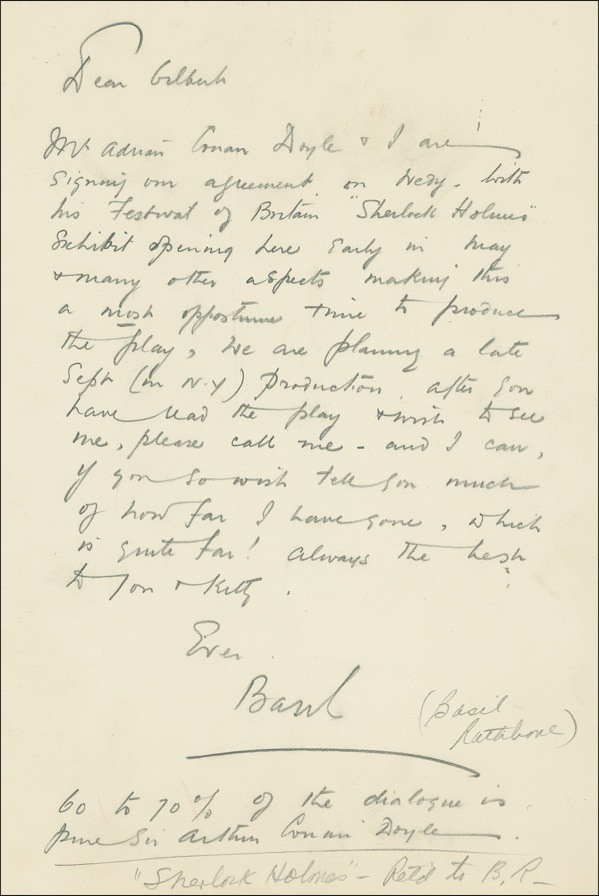 Dear Gilbert
Mr. Adrian Conan Doyle & I are
signing our agreement on Wedy. With
his Festival of Britain "Sherlock Holmes"
Exhibit opening here early in May
& many other aspects making this
a most opportune time to produce
the play, we are planning a late
Sept (in N.Y) Production. after you
have read the play & wish to see
me, please call me - and I can,
if you so wish tell you much
of how far I have gone, which
is quite far! always the best
to you & Kitty.
Ever
Basil
(Basil
Rathbone)
60 to 70% of the dialogue is
pure Sir Arthur Conan Doyle.
"Sherlock Holmes" - Retd to B.R.